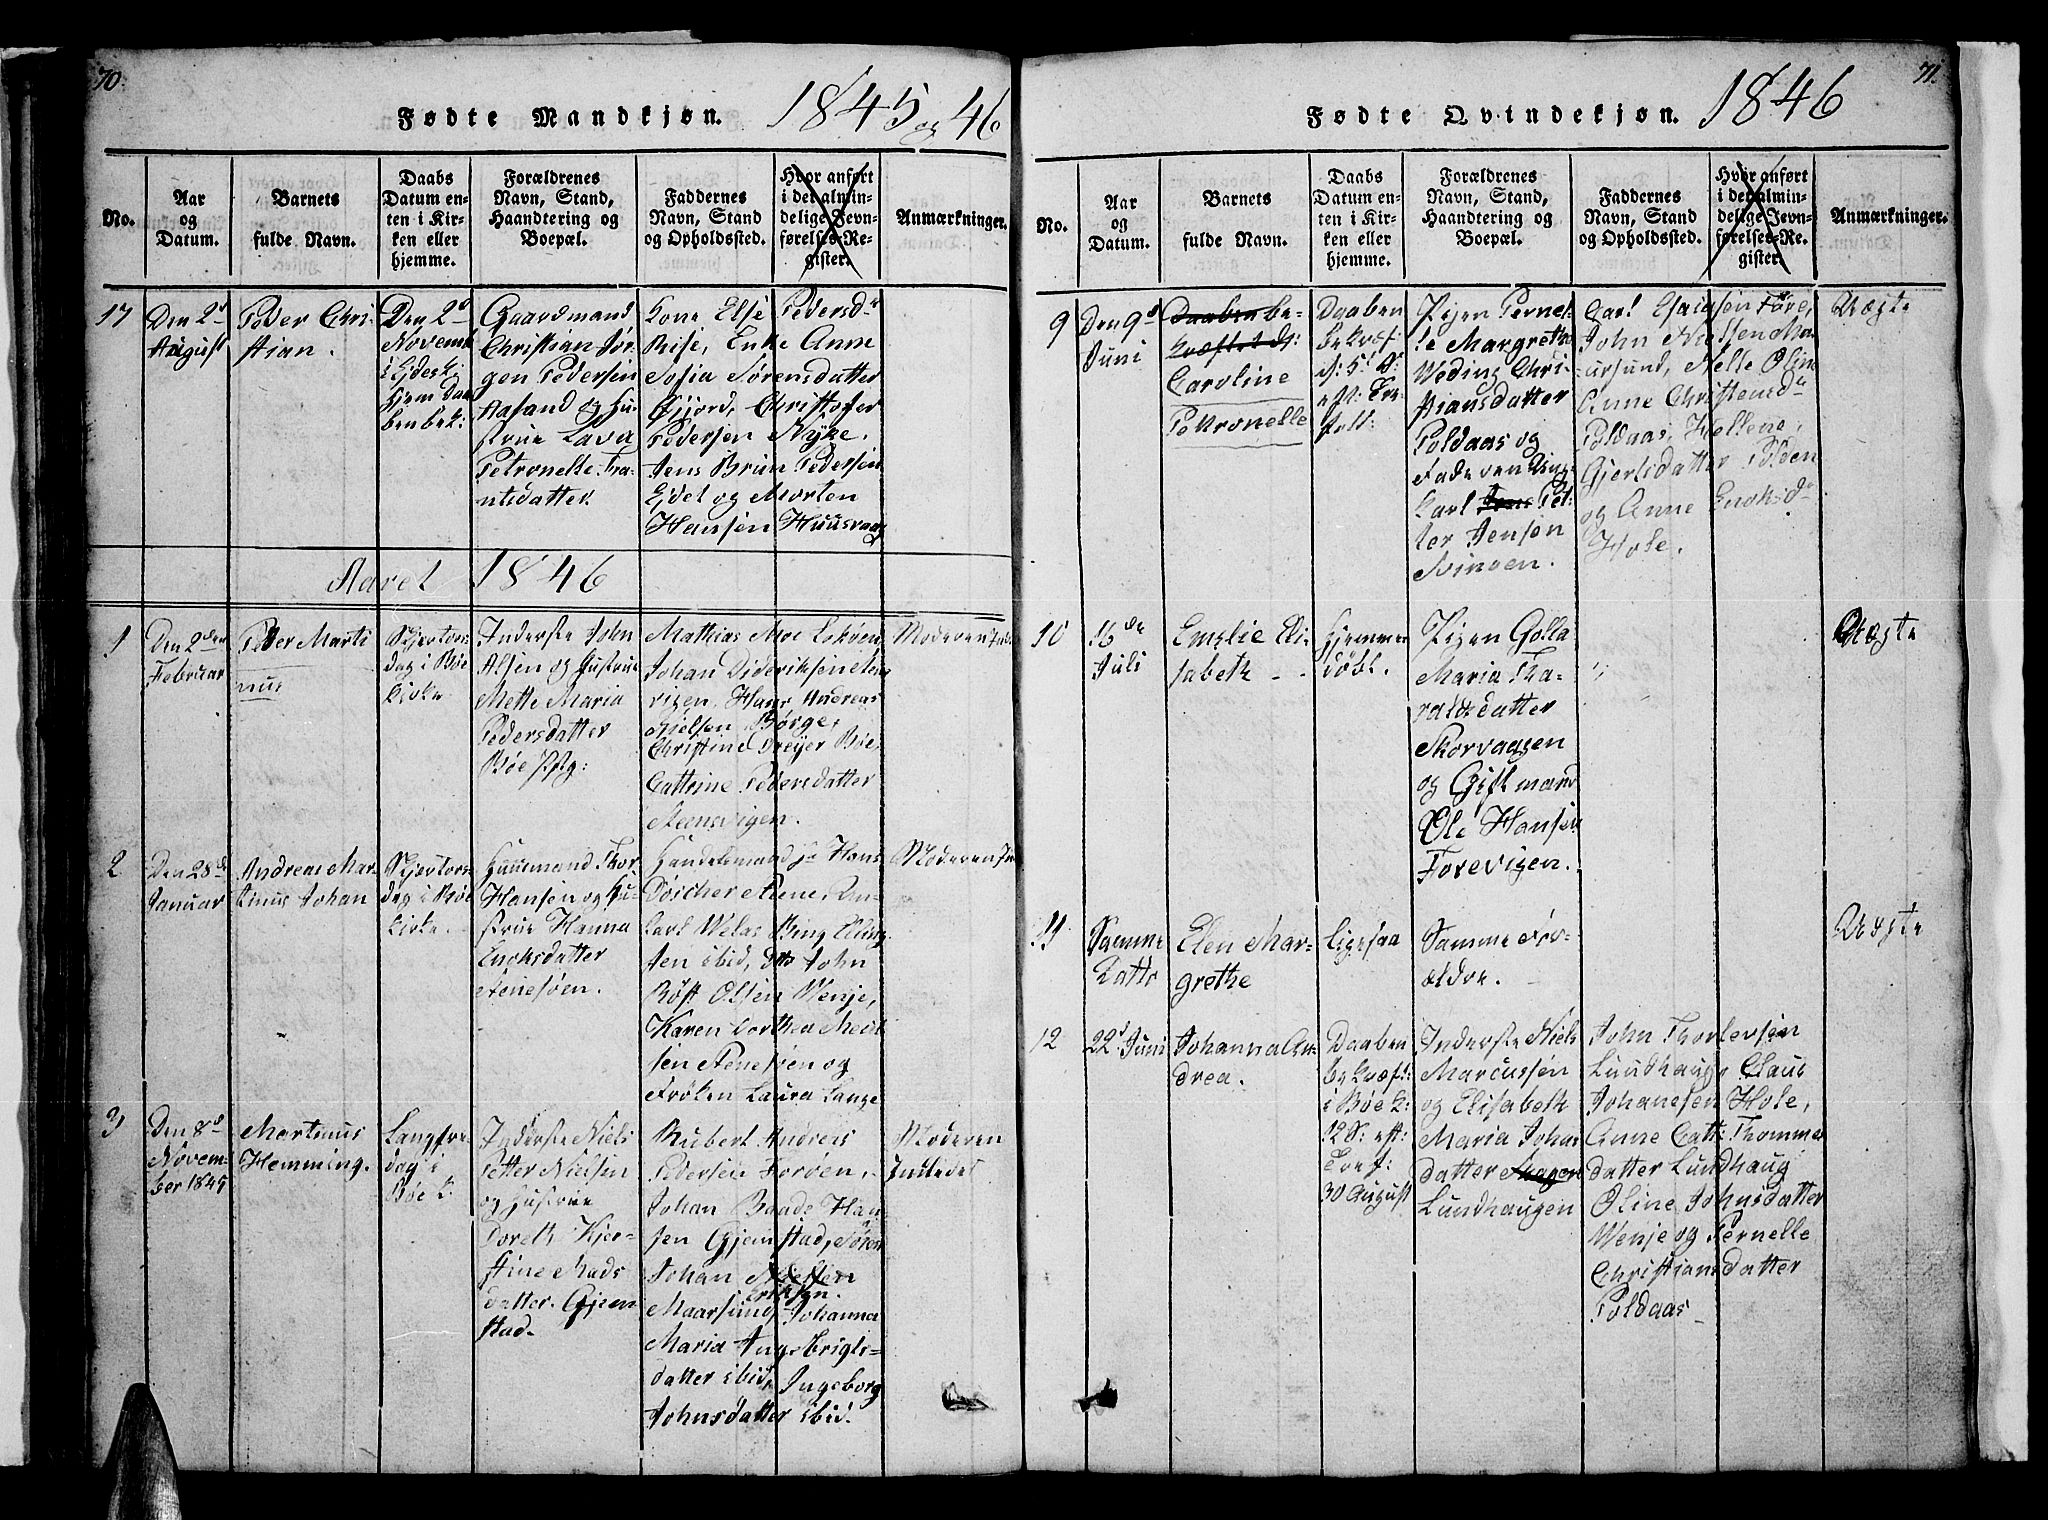 70.
Fødte Mandkjøn. 1845 og 46
No.
Aar
og
Datum.
Barnets
fulde Navn.
Daabs
Datum en-
ten i Kir-
ken eller
hjemme.
Forældrenes
Navn, Stand,
Haandtering og
Boepæl.
Faddernes
Navn, Stand
og Opholdssted.
Hvor anført
i det almin-
delige Jevn-
førelses-Re-
gister.
Anmærkninger.
17
Den 2d
August
Peder Chri-
stian.
Den 2d
Novemb
i Eidet K:
hjem daa
ben bek:
Gaardmand
Christian Jør
gen Pedersen
Aasand og Hu-
strue Lava
Petronelle Fra-
ntsdatter
Kone Else Pedersdr
Rise, Enke Anne
Sofia Sørensdatter
Gjjord, Christofer
Pedersen Nyke,
Jens Brun Pedersen
Ejdet og Morten
Hansen Huusvaag
Aaret 1846
1
Den 2den
Februar
Peder Marti
nus
Skjertors
dag i Bøe
Kirke
Inderste John
Alsen og Hustrue
Mette Maria
Pedersdatter
Bøe
Mathias Moe
Johan Dideriksen Sten
vigen, Hans Andreas
Nielsen Børge,
Christine Dreyer Bøe
Cattrine Pedersdatter
Steensvigen.
Moderen Ind
2
Den 28de
Januar
Andreas Mar
tinus Johan
Skjertors
dag i Bøe
Kirke.
Huusmand Thor
Hansen og Hu-
strue Hanna
Enoksdatter
Stenesøen.
Handelsmand Hr Hans
Døscher Stene,
Bing Elling
sen ibid, do John
Røst Olsen Wenje,
Karen Dorthea Niel
sen Stenesøen og
Frøken Laura Lange
Moderen In
3
Den 8d
Novem-
ber 1845
Martinus
Hemming.
Langfre
dag i
Bøe K.
Inderste Niels
Petter Nielsen
og Hustrue
Doreth Kjer-
stine Mads
datter Gjem
stad.
Rubert Andreas
Pedersen Forøen,
Johan Baade Han
sen Gjemstad, Søren
Johan Nielsen
Eriksen.
Maarsund, Johanna
Maria Ingebrigts-
datter ibid, Ingeborg
Johnsdatter ibid.
Moderen
Indledet
71.
Fødte Qvindekjøn. 1846
No.
Aar
og
Datum.
Barnets
fulde Navn.
Daabs
Datum en-
ten i Kir-
ken eller
hjemme.
Forældrenes
Navn, Stand,
Haandtering og
Boepæl.
Faddernes
Navn, Stand
og Opholdssted.
Hvor anført
i det almin-
delige Jevn-
førelses-Re-
gister.
Anmærkninger.
9
Den 9d
Juni
Daaben be-
kræftet d:
Caroline
Petronelle
Daaben
bekræf
d: 5: S:
eft. Tre
fold:
Pigen Pernel-
le Margrethe
Weding Chri-
stiansdatter
Poldaas og
Fade ren Ung
karl Jens Pet-
ter Jensen
Svinøen.
Carl Esaiasen Føre,
John Nielsen Ma
arsund, Nelle Olin
Anne Christensdr
Poldaas, Hellene
Gjertsdatter Polden
og Anne Enoksdr
Hole.
Uægte
10
16de
Juli
Emelie Eli-
sabeth
Hjemme
døbt.
Pigen Golla
Maria Tha-
raldsdatter
Skorvaagen
og Giftmand
Ole Hansen
Forevigen.
Uægte
11
Samme
Datto
Elen Mar-
grethe
Ligesaa
Samme For-
ældre.
Uægte
12
22d Juni
Johanna An-
drea.
Daaben
bekræft:
i Bøe K:
12 S: eft:
Tref:
30 August
Inderste Niels
Marcussen
og Elisabeth
Maria Johan
datter Skagen
Lundhaugen
John Thorlevsen
Lundhaug, Claus
Johanesen Hole,
Anne Cath: Thommes
datter Lundhaug
Oline Johnsdatter
Wenje og Pernelle
Christiansdatter
Poldaas